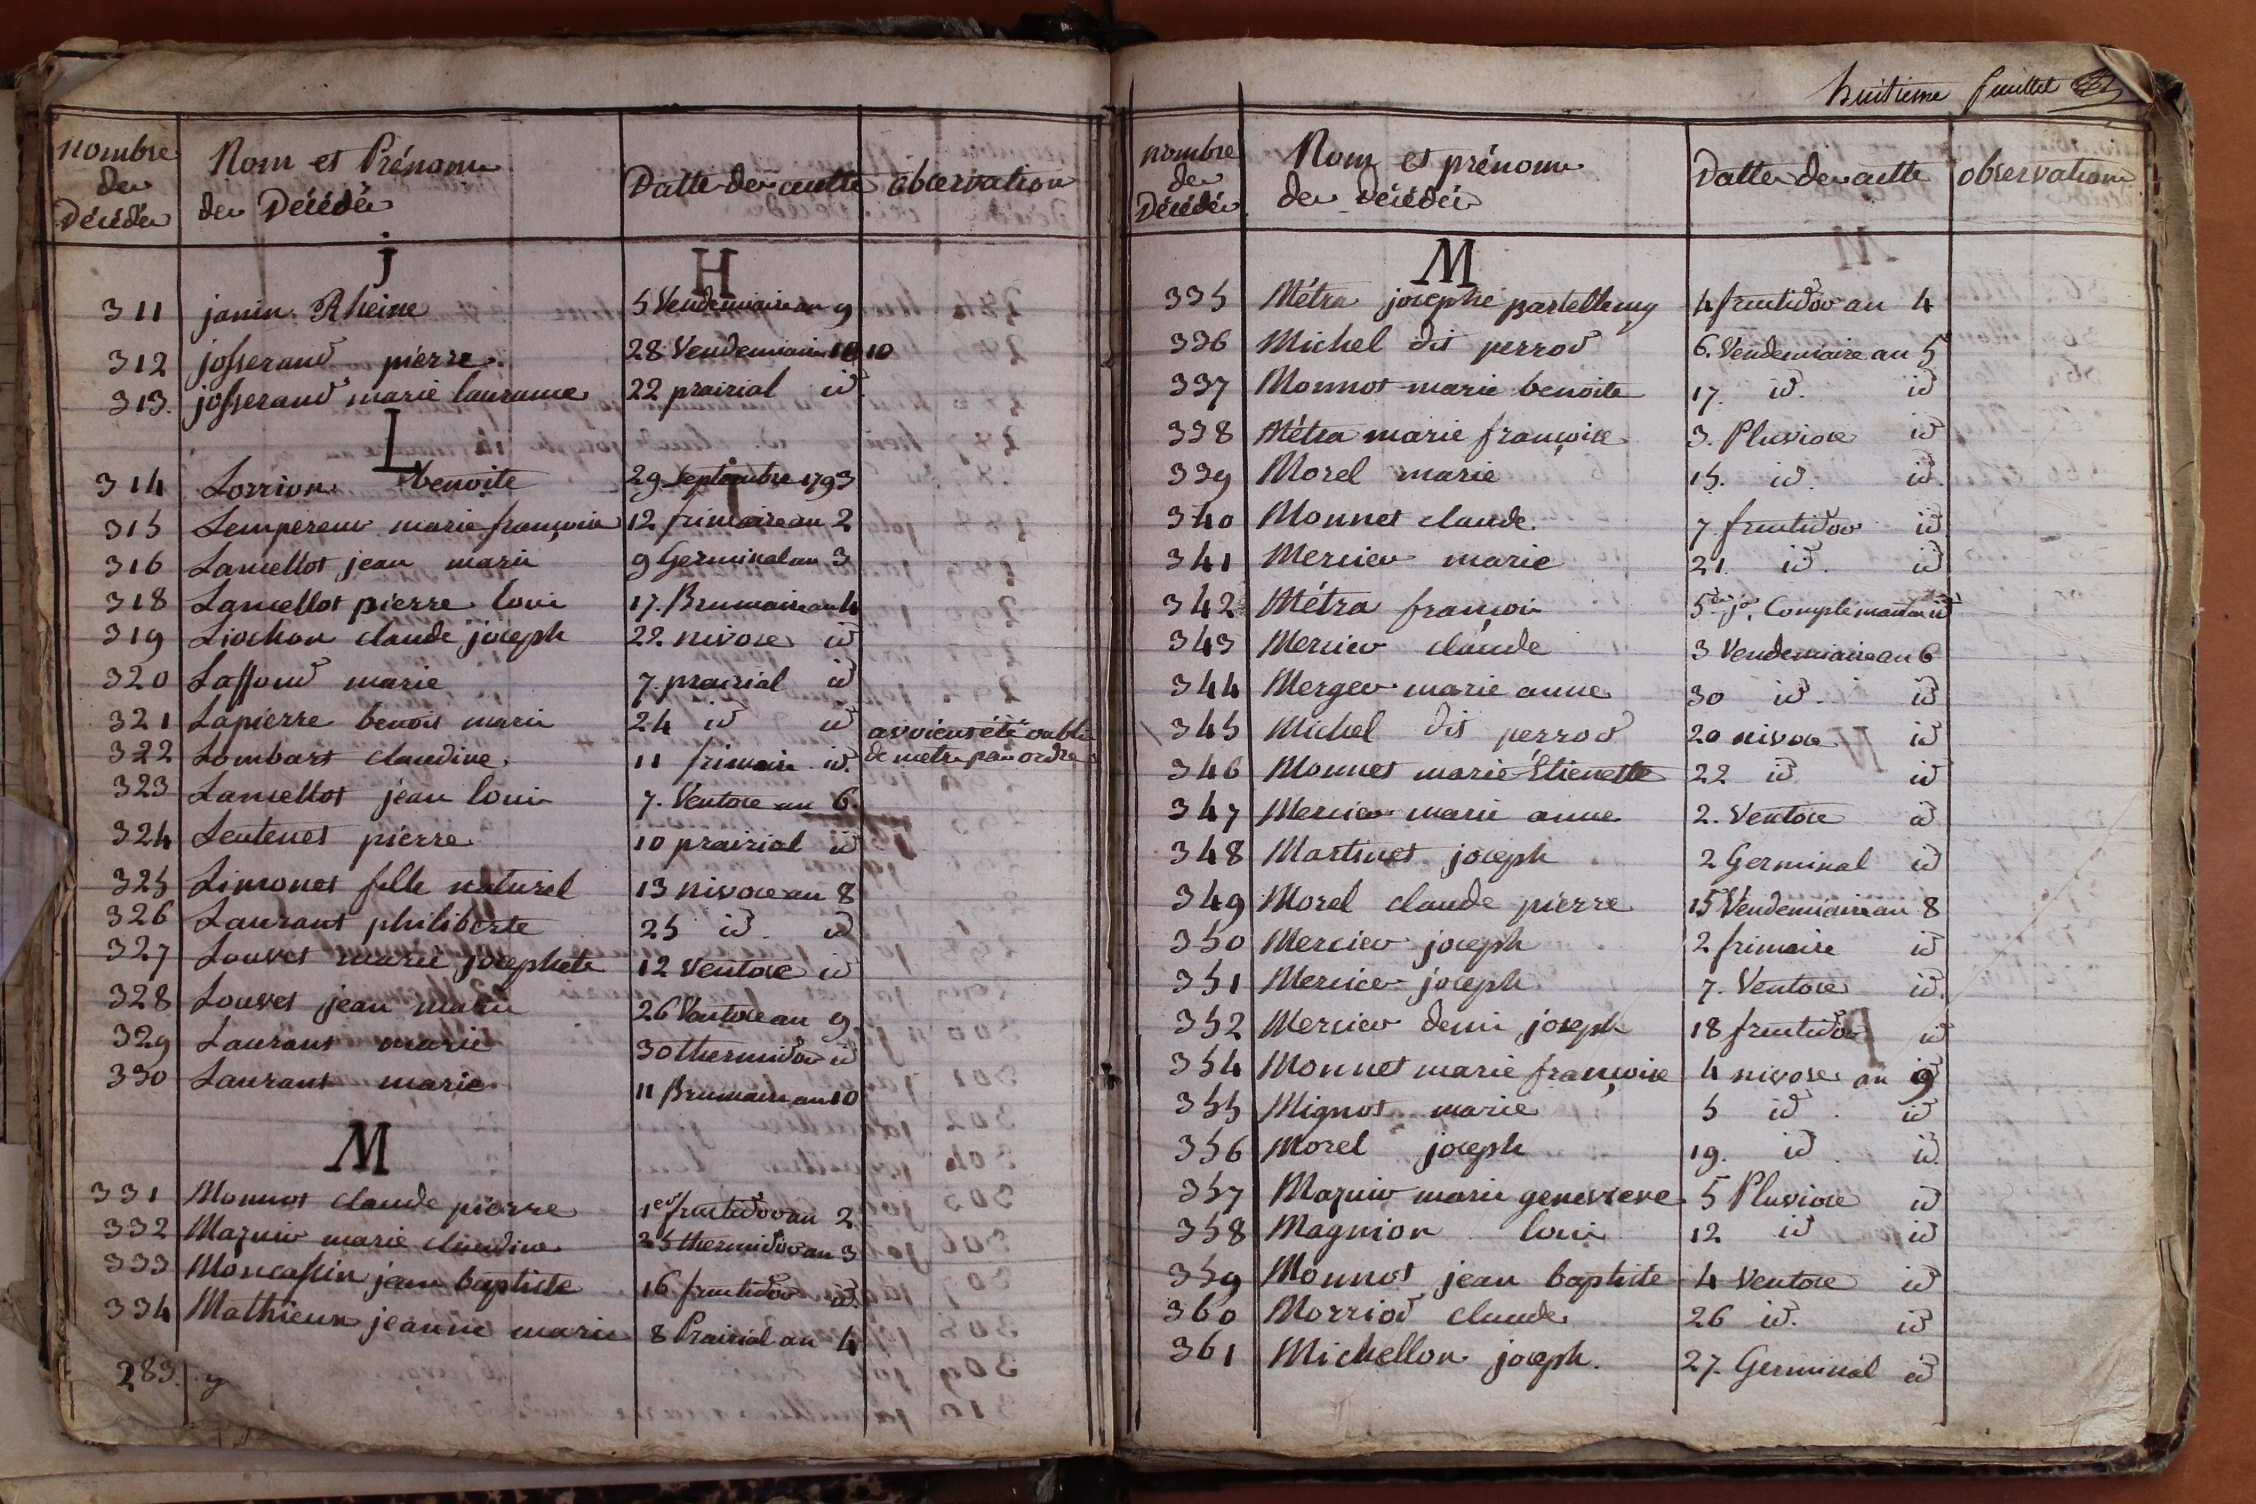 nombre
des
Décédés
Nom et Prénoms
des Décédés
Datte des actte
observation
j
311 janin Rheine 5 Vendemiaire an 9
312 josserand pierre 28 Vendemiaire 10 10
313. josserand marie laurance 22 prairial id
L
314 Lorrion benoite 29 septembre 1793
315 Lempereur marie françoise 12 frimaire an 2
316 Lancellot jean marie 9 Germinal an 3
318 Lancellot pierre loui 17. Brumaire an 4
319 Liochon claude joseph 22 nivose id
320 Laffond marie 7. prairial id
321 Lapierre benoit marie 24 id id
322 Lombart claudine 11 frimaire id.
avoient été oublié
de metre par ordre
323 Lancellot jean loui 7. Ventose an 6.
324 Leutenet pierre 10 prairial id
325 Limonet fille naturel 13 nivose an 8
326 Laurant philiberte 25 id id
327 Louvet marie josephete 12 Ventose id
328 Louvet jean marie 26 Ventose an 9
329 Laurant marie 30 thermidor id
330 Laurant marie 11 Brumaire an 10
M
331 Monnot claude pierre 1er fructidor an 2
332 Maznir marie claudine 25 thermidor an 3
333 Moncassin jean baptiste 16 fructidor id.
334 Mathieux jeanne marie 8 Prairial an 4
283. g
huitieme feuillet
nombre
des
Décédés
Nom et prénoms
des Décédés
Datte des actte
observation
M
335 Métra josephe bartellemy 4 fructidor an 4
336 Michel dit perrod 6. Vendemiaire an 5
337 Monnot marie benoite 17. id. id
338 Métra marie françoise 3. Pluviose id
339 Morel marie 15. id. id.
340 Monnet claude 7 fructidor id
341 Mercier marie 21. id. id
342 Métra françoi 5 Complementair id
343 Mercier claude 3 Vendemiaire an 6
344 Merger marie anne 30 id. id
345 Michel dit perrod 20 nivose id
346 Monnet marie Étienette 22 id id
347 Mercier marie anne 2. Ventose id
348 Martinet joseph 2 Germinal id
349 Morel claude pierre 15 Vendemiaire an 8
350 Mercier joseph 2 frimaire id
351 Mercier joseph 7. Ventose id.
352 Mercier deni joseph 18 fructidor id
354 Monnet marie françoise 4 nivose an 9
355 Mignot marie 5 id. id
356 Morel joseph 19. id. id
357 Maznir marie genevieve 5 Pluviose id
358 Magnion loui 12 id id
359 Monnot jean baptiste 4 Ventose id
360 Morriod claude 26 id. id
361 Michellon joseph. 27. Germinal id